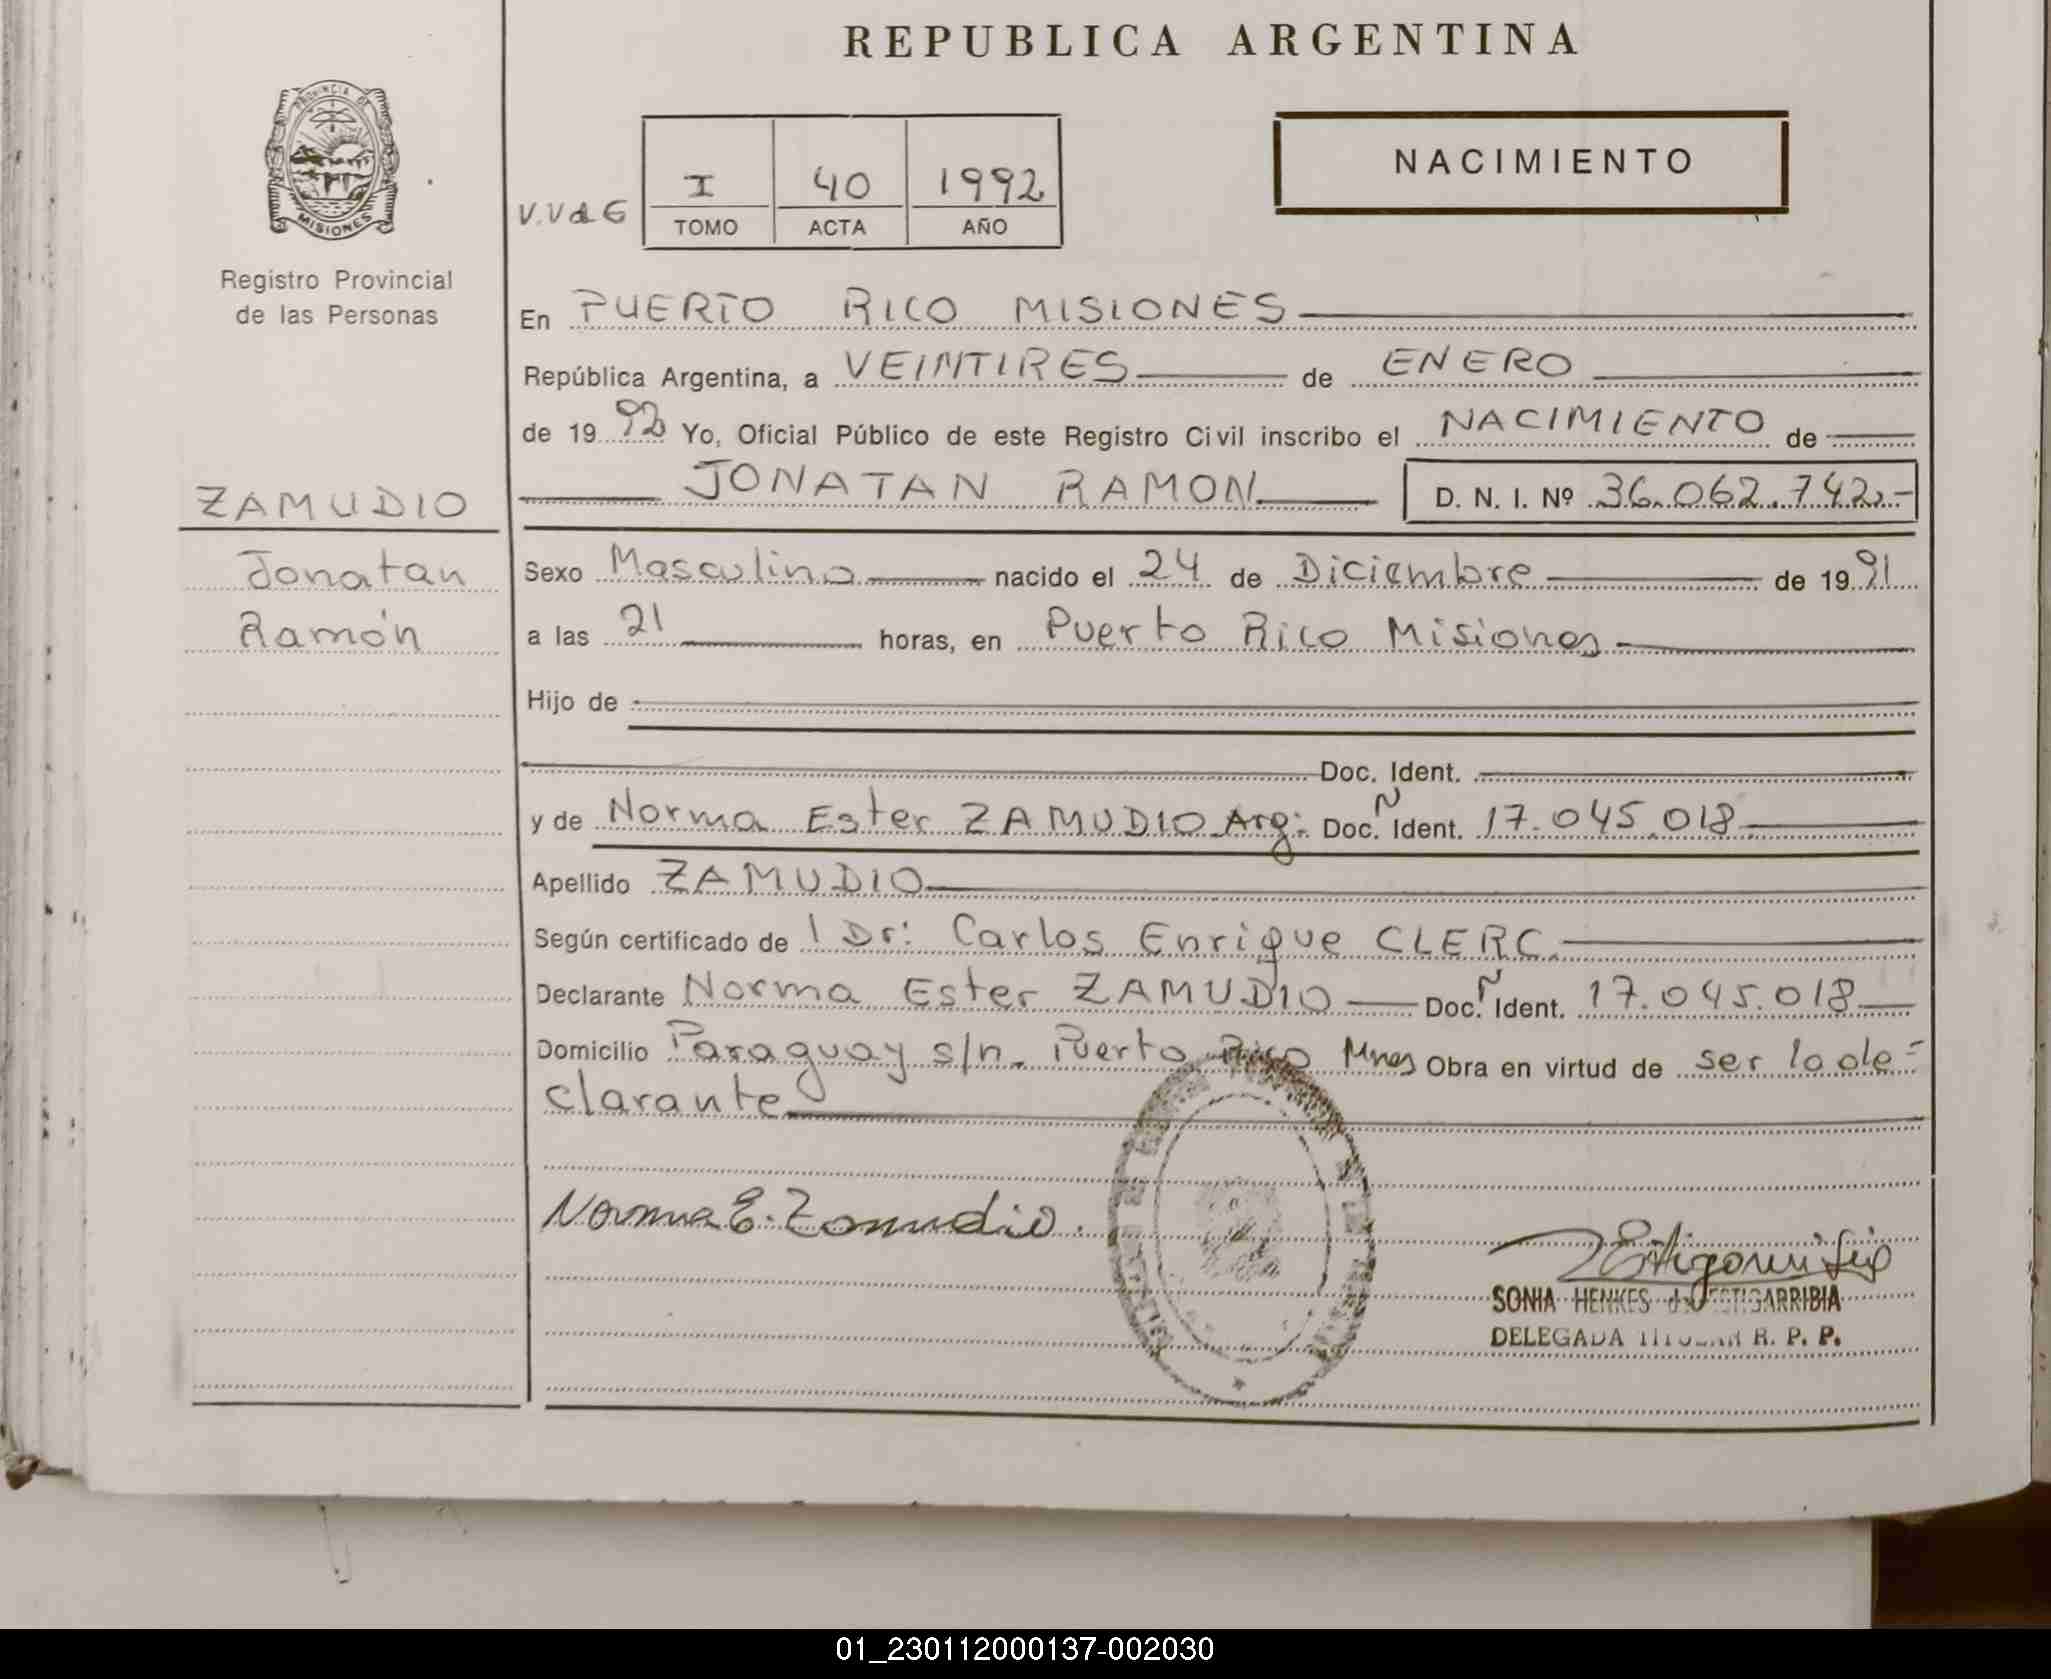 REPUBLICA ARGENTINA
PROVINCIA DE
MISIONES
Registro Provincial
de las Personas
NACIMIENTO
V.V de G
I 40 1992
TOMO ACTA AÑO
En PUERTO RICO MISIONES
República Argentina, a VEINTIRES de ENERO
de 19 92 Yo, Oficial Público de este Registro Civil inscribo el NACIMIENTO de
JONATAN RAMON D. N. I. Nº 36.062.742.-
ZAMUDIO
Jonatan
Ramón
Sexo Masculino nacido el 24 de Diciembre de 19 91
a las 21 horas, en Puerto Rico Misiones
Hijo de
Doc. Ident.
y de Norma Ester ZAMUDIO Arg: Doc. N Ident. 17.045.018
Apellido ZAMUDIO
Según certificado de l Dr: Carlos Enrique CLERC.
Declarante Norma Ester ZAMUDIO Doc. N Ident. 17.045.018
Domicilio Paraguay s/n. Puerto Rico Mnes Obra en virtud de ser la de=
clarante
Norma E. Zamudio.
SONIA HENKES de ESTIGARRIBIA
DELEGADA TITULAR R. P. P.
01_230112000137-002030